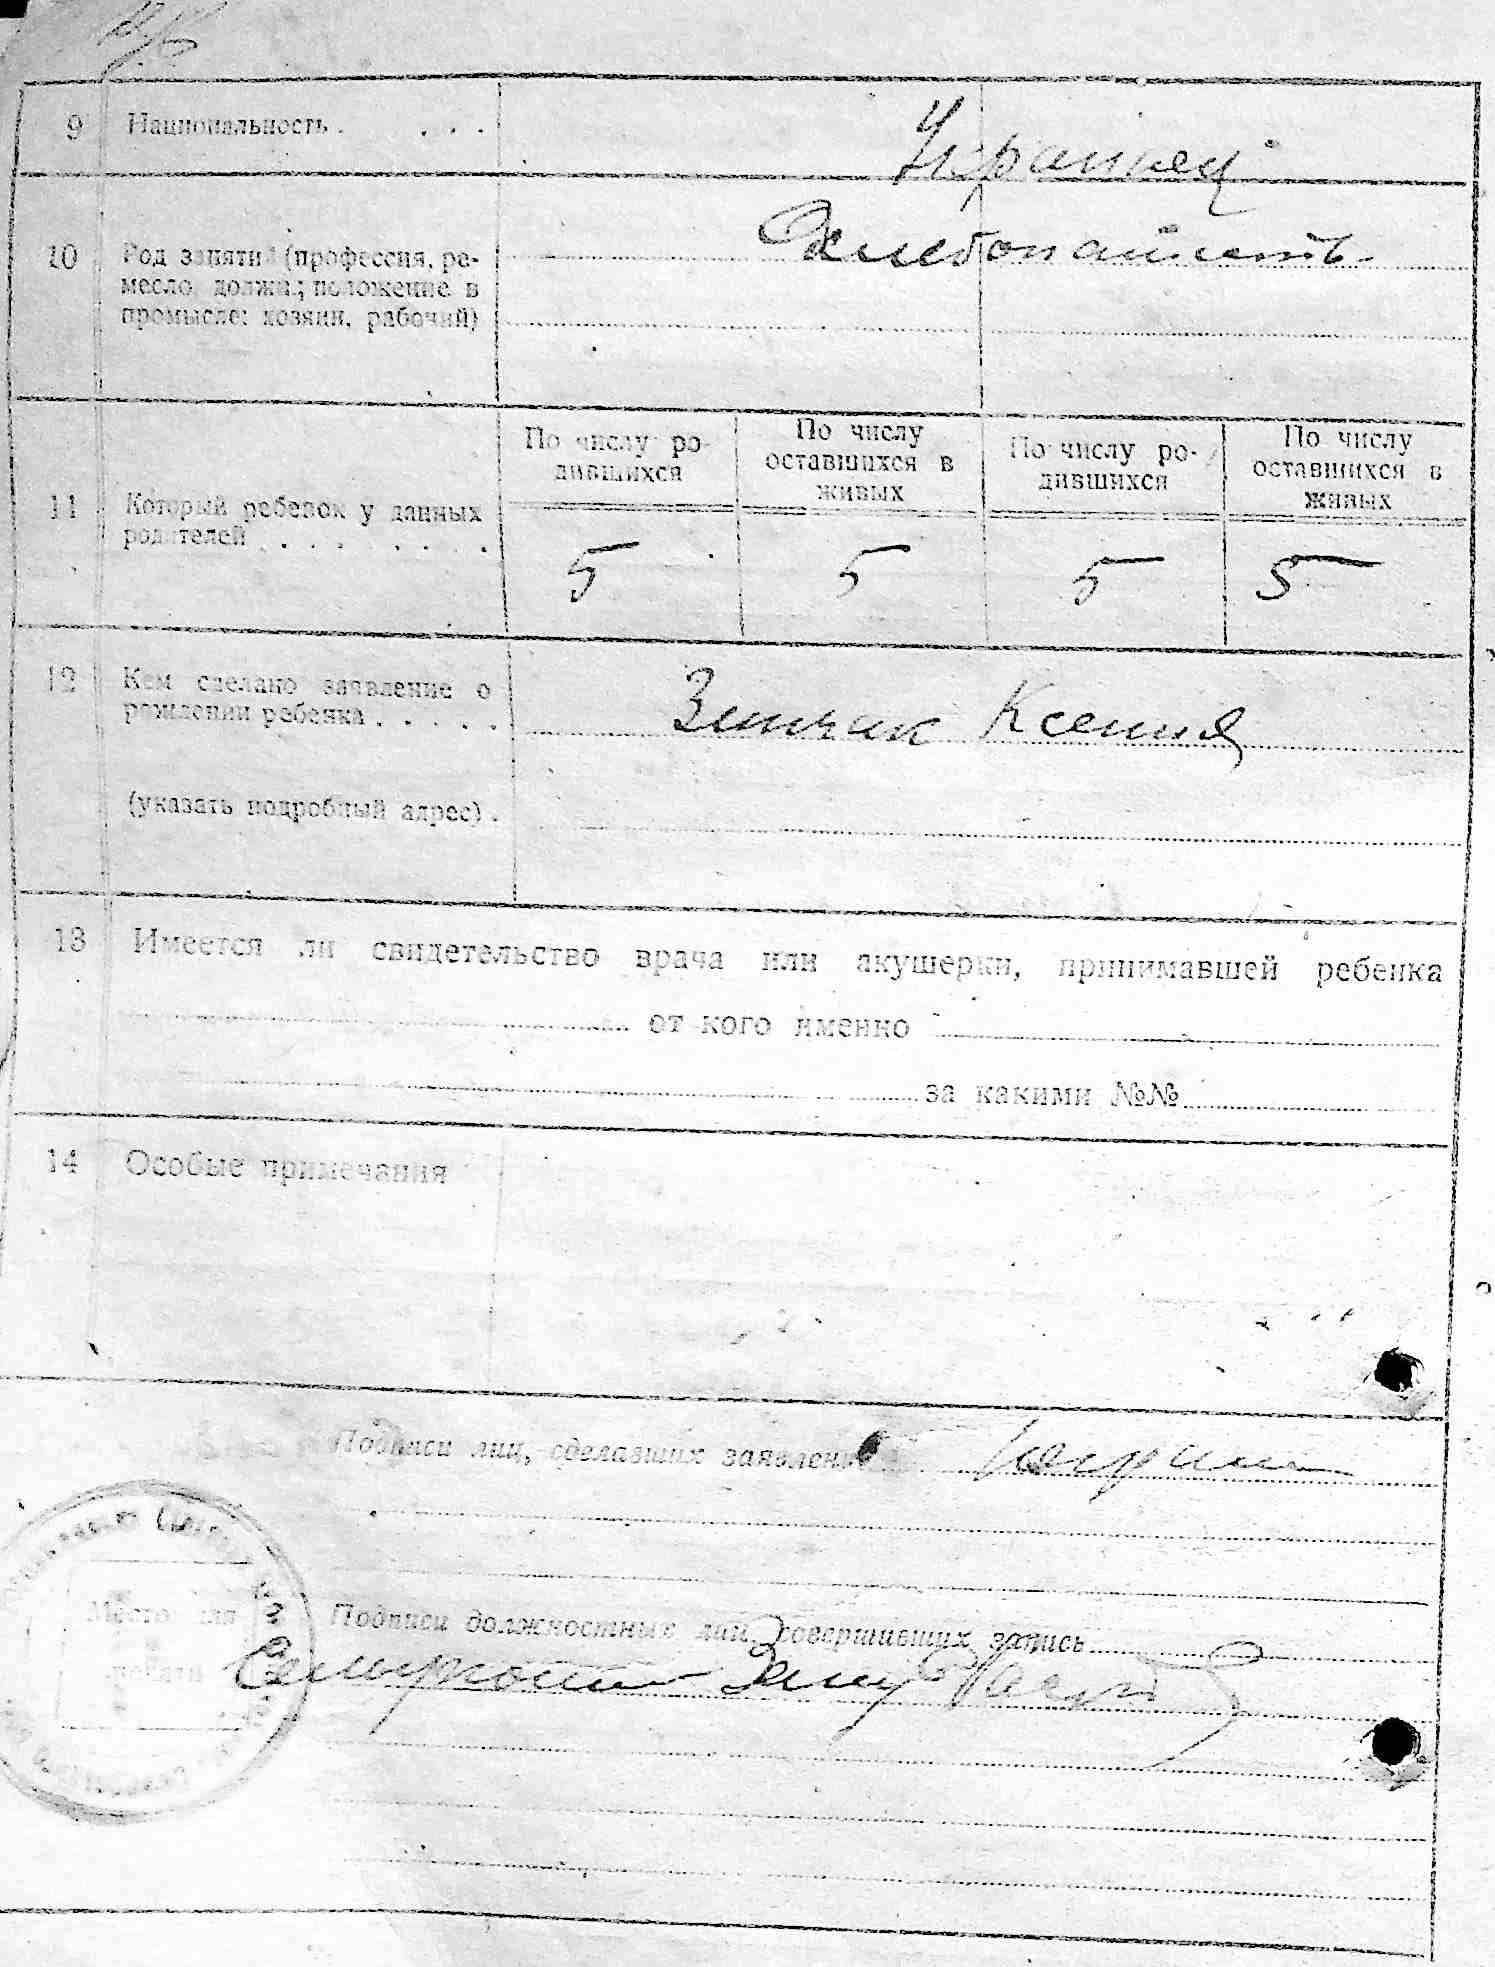 9 Национальность . . . .
Украинец
10 Род занятий (профессия, ре-
месло, должн.; положение в
промысле: хозяин, рабочий)
Хлебопашество
11 Который ребенок у данных
родителей . . . . . . .
По числу ро-
дившихся
По числу
оставшихся в
живых
По числу ро-
дившихся
По числу
оставшихся в
живых
5 5 5 5
12 Кем сделано заявление о
рождении ребенка . . . . .
Зинчик Ксения
(указать подробный адрес) .
13 Имеется ли свидетельство врача или акушерки, принимавшей ребенка
от кого именно
за какими №№
14 Особые примечания
Подписи лиц, сделавших заявление
Место для
печати
Подписи должностных лиц, совершивших запись